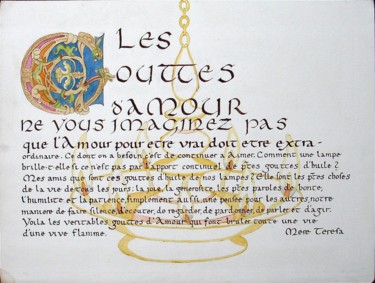 LES
GOUTTES
d'AMOUR
NE VOUS IMAGINEZ PAS
que l'Amour pour etre vrai doit etre extra-
ordinaire. Ce dont on a besoin, c'est de continuer a Aimer. Comment une lampe
brille-t-elle si ce n'est pas par l'apport continuel de ptes gouttes d'huile ?
Mes amis que sont ces gouttes d'huile de nos lampes ? Elle sont les ptes choses
de la vie de tous les jours: la joie, la generosite, les ptes paroles de bonte,
l'humilite et la patience, simplement aussi une pensee pour les autres, notre
maniere de faire silence, d'ecouter, de regarder, de pardonner, de parler et d'agir.
Voila les veritables gouttes d'Amour qui font bruler toute une vie
d'une vive flamme. Mere Teresa